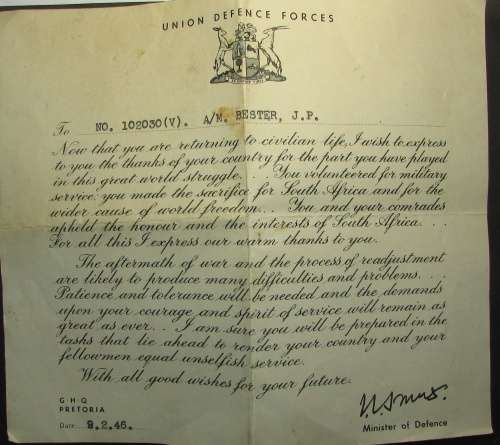 UNION DEFENCE FORCES
To NO. 102030(V). A/M. BESTER, J.P.
Now that you are returning to civilian life, I wish to express
to you the thanks of your country for the part you have played
in this great world struggle. . . You volunteered for military
service: you made the sacrifice for South Africa and for the
wider cause of world freedom. . . You and your comrades
upheld the honour and the interests of South Africa. . .
For all this I express our warm thanks to you.
The aftermath of war and the process of readjustment
are likely to produce many difficulties and problems. . . .
Patience and tolerance will be needed and the demands
upon your courage and spirit of service will remain as
great as ever. . . I am sure you will be prepared in the
tasks that lie ahead to render your country and your
fellowmen equal unselfish service.
With all good wishes for your future.
G H Q
PRETORIA
Date 9.2.46.
Minister of Defence